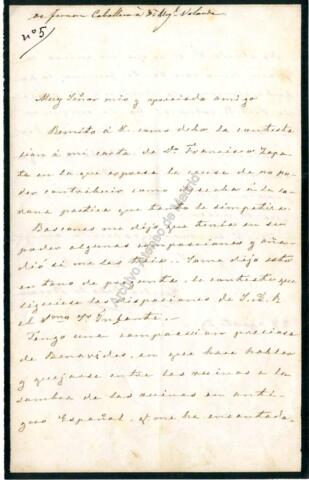 de Fernan Caballero à Dn Migl. Velarde
nº 5
Muy Señor mio y apreciado amigo
Remito á V. como debo la contesta
cion á mi carta de Dn. Francisco Zapa
ta en la que espresa la causa de no po
der contribuir como deseaba á la co
rona poetica que tanto le simpatiza.
Bascones me dijo que tenia en su
poder algunas composiciones y aña
dió si me las traia. Como dijo esto
en tono de pregunta, le contesté que
siguiese las disposiciones de S. A. R
el Smo Sr Infante.
Tengo una composicion preciosa
de Benavides, en que hace hablar
y quejarse entre las ruinas a la
sombra de las ruinas en anti
guo Español, q me ha encantado.
Archivo Alonso de Madrid